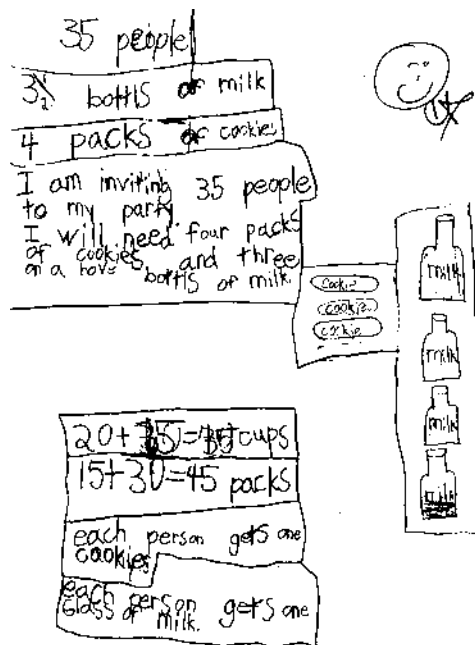 35 people
3½ bottls of milk
4 packs of cookies
I am inviting 35 people
to my party
I will need four packs
of cookies and three
on a hove bottls of milk.
cookie
cookie
cookie
milk
milk
milk
milk
20+ = cups
15+30=45 packs
each person gets one
cookies
each person gets one
Glass of milk.